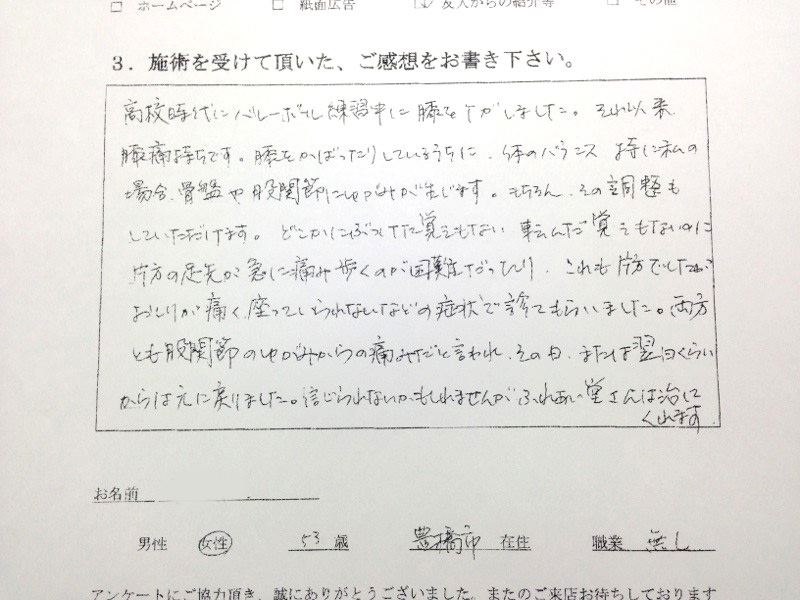 □ ホームページ □ 紙面広告 ☑ 友人からの紹介等 □ その他
3．施術を受けて頂いた、ご感想をお書き下さい。
高校時代にバレーボール練習中に膝をケガしました。それ以来
膝痛持ちです。膝をかばったりしているうちに、体のバランス 特に私の
場合、骨盤や股関節にゆがみが生じます。もちろん、その調整も
していただけます。どこかにぶつけた覚えもない 転んだ覚えもないのに
片方の足先が急に痛み歩くのが困難だったり、これも片方でしたが
おしりが痛く座っていられないなどの症状で診てもらいました。両方
とも股関節のゆがみからの痛みだと言われ、その日、または翌日くらい
からは元に戻りました。信じられないかもしれませんが ふれあい堂さんは治して
くれます
お名前
男性 女性 53 歳 豊橋市 在住 職業 無し
アンケートにご協力頂き、誠にありがとうございました。またのご来店お待ちしております